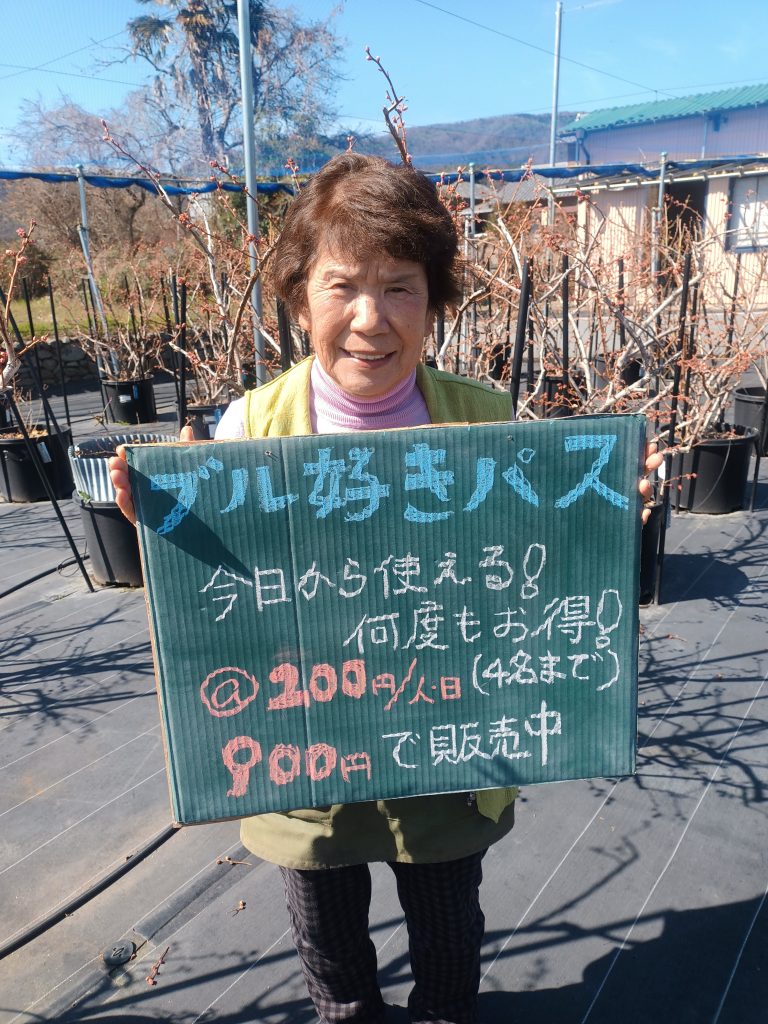 ブル好きパス
今日から使える!
何度もお得!
@200円/人・日(4名まで)
900円で販売中